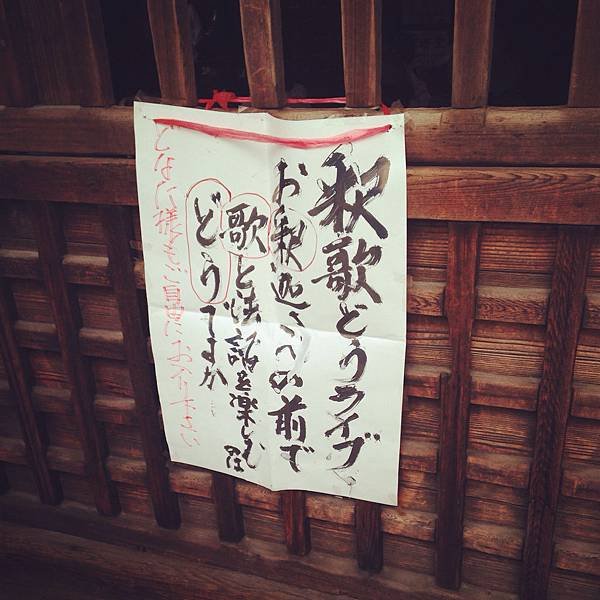 釈歌どうライブ
お釈迦さまの前で
歌と法話を楽しむ会
どうですか
どなた様もご自由にお入り下さい